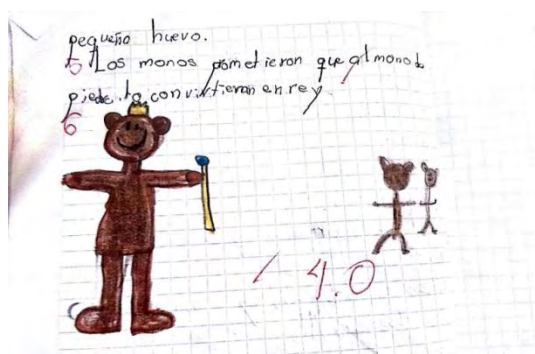 pequeño huevo.
5 Los monos pometieron que al mono d
piede lo convirtieran en rey
6
4.0